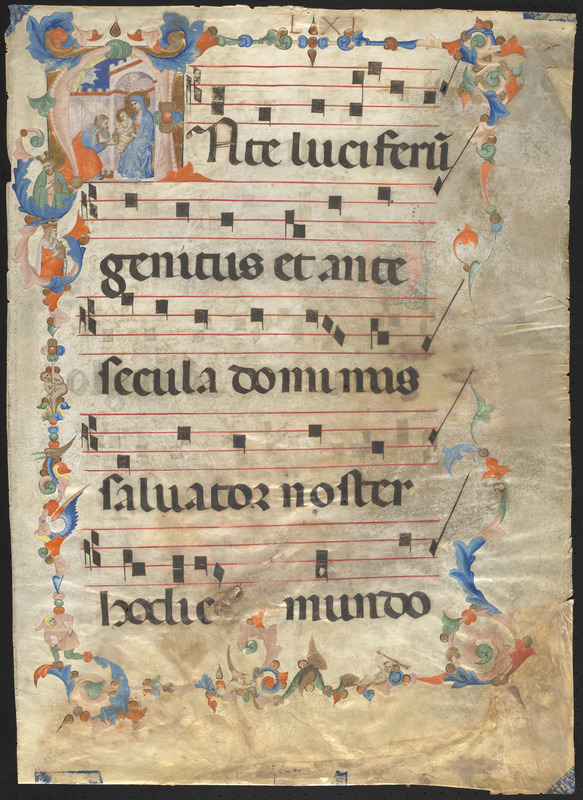 ANte luciferū
genitus et ante
secula dominus
saluator noster
hodie mundo